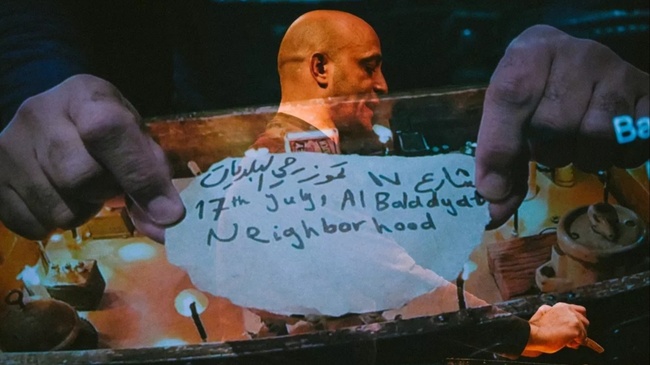 شارع ١٧ تموز، حي البلديات
17th July, Al Baladyat
Neighborhood
Ba